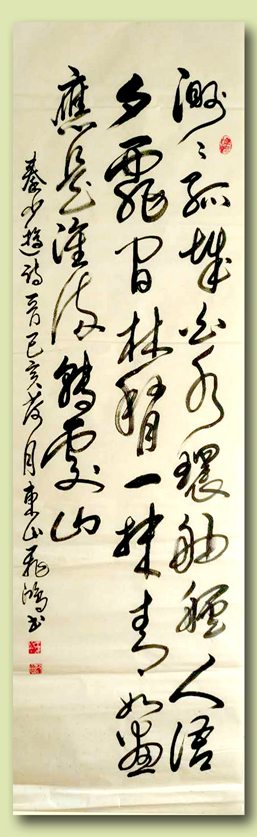 渺〻孤城白水環舳艫人語
夕霏間林梢一抹青如畫
應是淮流轉處山
秦少遊詩一首己亥月東山飛鴻書